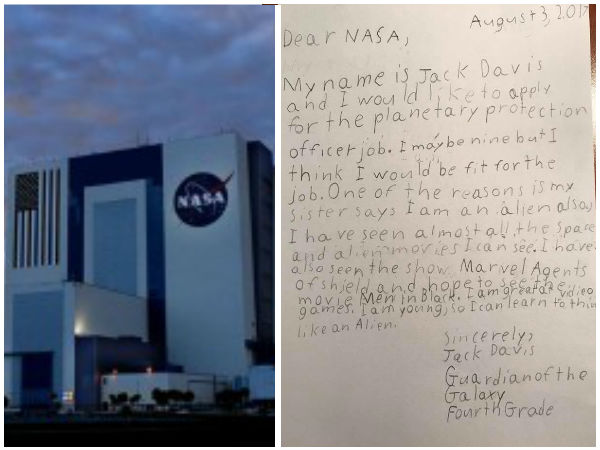 NASA
August 3, 2017
Dear NASA,
My name is Jack Davis
and I would like to apply
for the planetary protection
officer job. I may be nine but I
think I would be fit for the
job. One of the reasons is my
sister says I am an alien also,
I have seen almost all the space
and alien movies I can see. I have
also seen the show Marvel Agents
of Shield and hope to see the
movie Men in Black. I am great at video
games. I am young, so I can learn to think
like an Alien.
Sincerely,
Jack Davis
Guardian of the
Galaxy
Fourth Grade